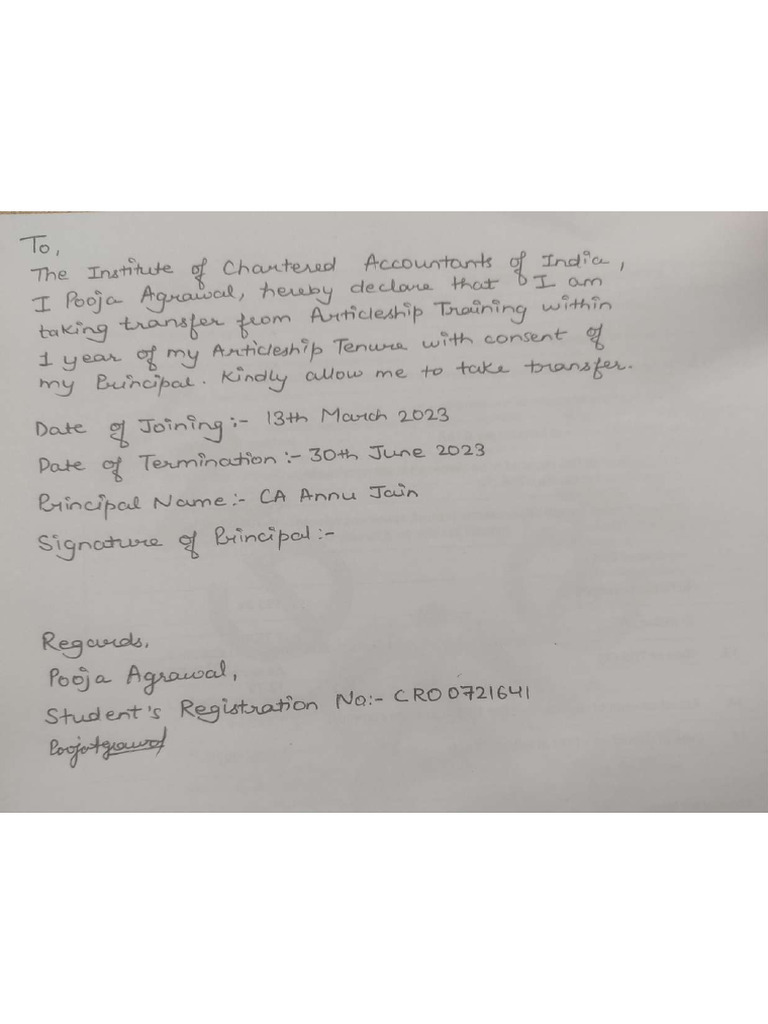 To,
The Institute of Chartered Accountants of India,
I Pooja Agrawal, hereby declare that I am
taking transfer from Articleship Training within
1 year of my Articleship Tenure with consent of
my Principal. Kindly allow me to take transfer.
Date of Joining:- 13th March 2023
Date of Termination:- 30th June 2023
Principal Name:- CA Annu Jain
Signature of Principal:-
Regards,
Pooja Agrawal,
Student's Registration No:- CRO0721641
PoojaAgrawal